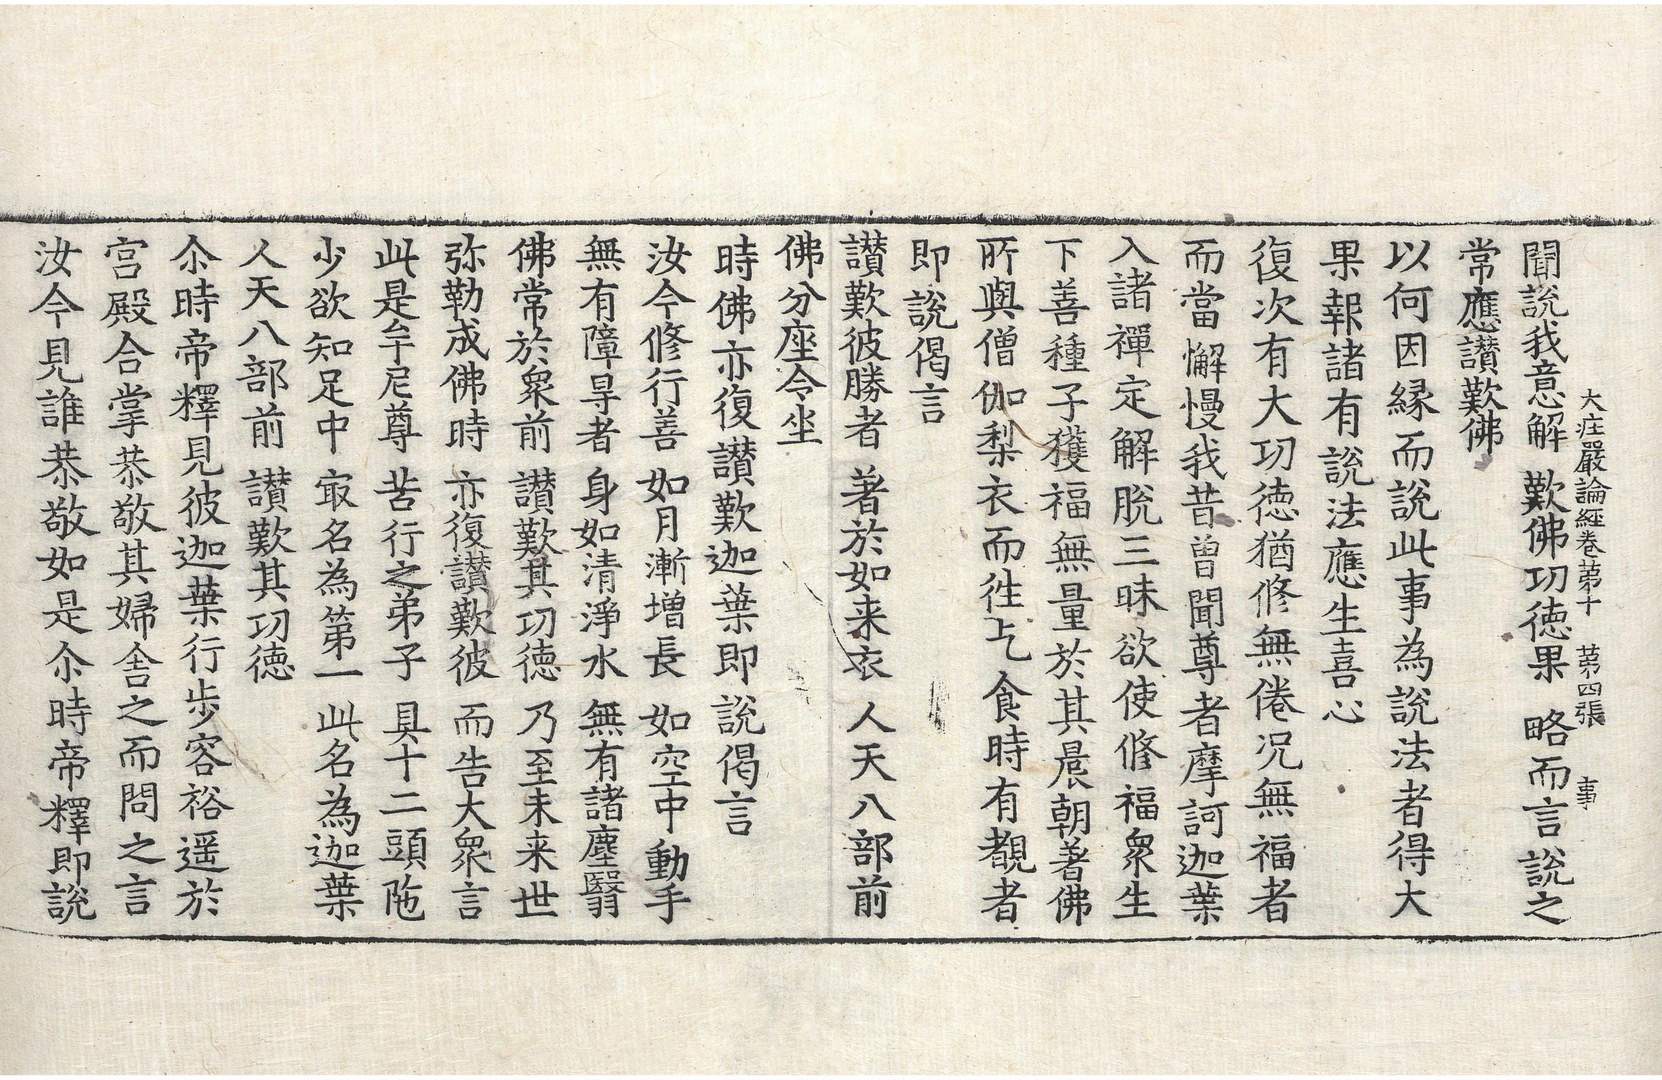 大庄嚴論經卷苐十　苐四張　事
聞說我意解　歎佛功徳果　略而言說之
常應讃歎佛
以何因縁而說此事為說法者得大
果報諸有說法應生喜心
復次有大功徳猶修無倦况無福者
而當懈慢我昔曾聞尊者摩訶迦葉
入諸禪定解脫三昧欲使修福衆生
下善種子獲福無量於其晨朝著佛
所與僧伽梨衣而徃乞食時有覩者
即說偈言
讃歎彼勝者　著於如来衣　人天八部前
佛分座令坐
時佛亦復讃歎迦葉即說偈言
汝今修行善　如月漸增長　如空中動手
無有障㝵者　身如清淨水　無有諸塵翳
佛常於衆前　讃歎其功徳　乃至未来世
弥勒成佛時　亦復讃歎彼　而告大衆言
此是牟尼尊　苦行之弟子　具十二頭陁
少欲知足中　㝡名為第一　此名為迦葉
人天八部前　讃歎其功徳
尒時帝釋見彼迦葉行步容裕遥於
宫殿合掌恭敬其婦舎之而問之言
汝今見誰恭敬如是尒時帝釋即說